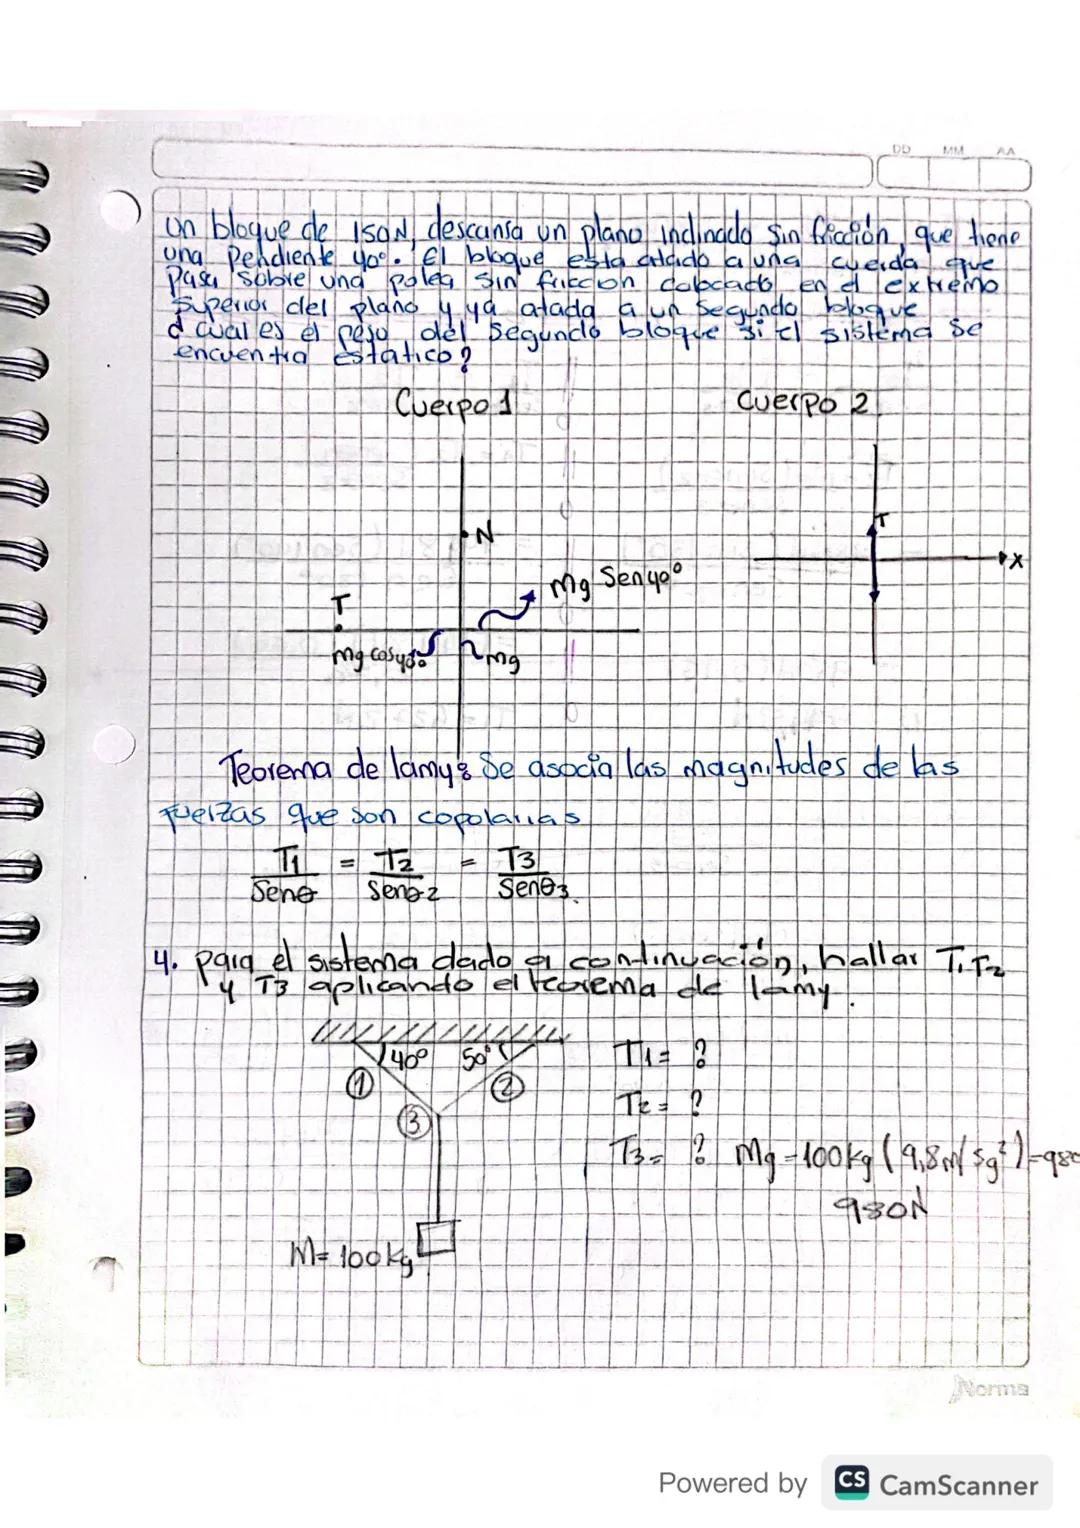 DD MM AA
un bloque de 150N, descansa un plano inclinado sin fricción, que tiene
una Pendiente 40°. El bloque esta atado a una cuerda que
pasa sobre una polea sin friccion colocado en el extremo
superior del plano y ya atada a un segundo bloque
d cual es el peso del segundo bloque si el sistema se
encuentra estático?
Cuerpo 1 Cuerpo 2
N T
x
mg Sen40°
T
mg cos40° mg
Teorema de lamy: Se asocia las magnitudes de las
fuerzas que son copolarias
T1/Senθ = T2/Senθ2 = T3/Senθ3
4. para el sistema dado a continuación, hallar T1, T2
y T3 aplicando el teorema de lamy.
40° 50° T1= ?
1 2
T2= ?
3
T3= ? Mg=100kg (9,8m/sg²)=980
980N
M= 100kg
Norma
Powered by CS CamScanner